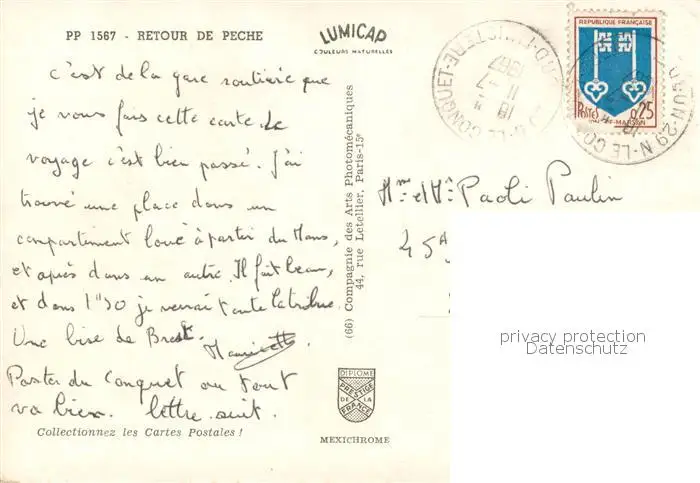 PP 1567 - RETOUR DE PECHE
LUMICAP
COULEURS NATURELLES
c'est de la gare routière que
je vous fais cette carte. Le
voyage s'est bien passé. J'ai
trouvé une place dans un
compartiment loué à partir du Mans,
et après dans un autre. Il fait beau,
et dans 1"30 je verrai toute la tribu.
Une bise de Brest.
Postée du Conquet où tout
va bien. lettre suit.
Collectionnez les Cartes Postales !
(66) Compagnie des Arts Photomécaniques
44, rue Letellier, Paris-15e
DIPLOME
PRESTIGE
DE LA
FRANCE
MEXICHROME
REPUBLIQUE FRANÇAISE
POSTES 0,25
MONT-DE-MARSAN
LE CONQUET-FINISTERE
18 H
11 -7
1967
29 N-LE CO
Mme et Mr Paoli Paulin
45A
privacy protection
Datenschutz